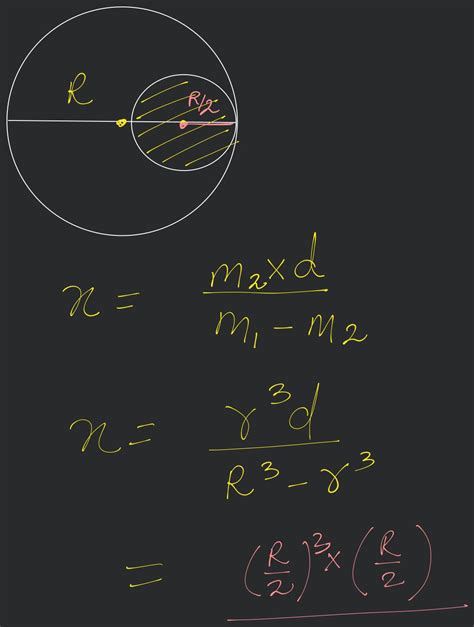 R
R/2
x = m₂ × d / m₁ − m₂
x = r³d / R³ − r³
= (R/2)³ × (R/2)